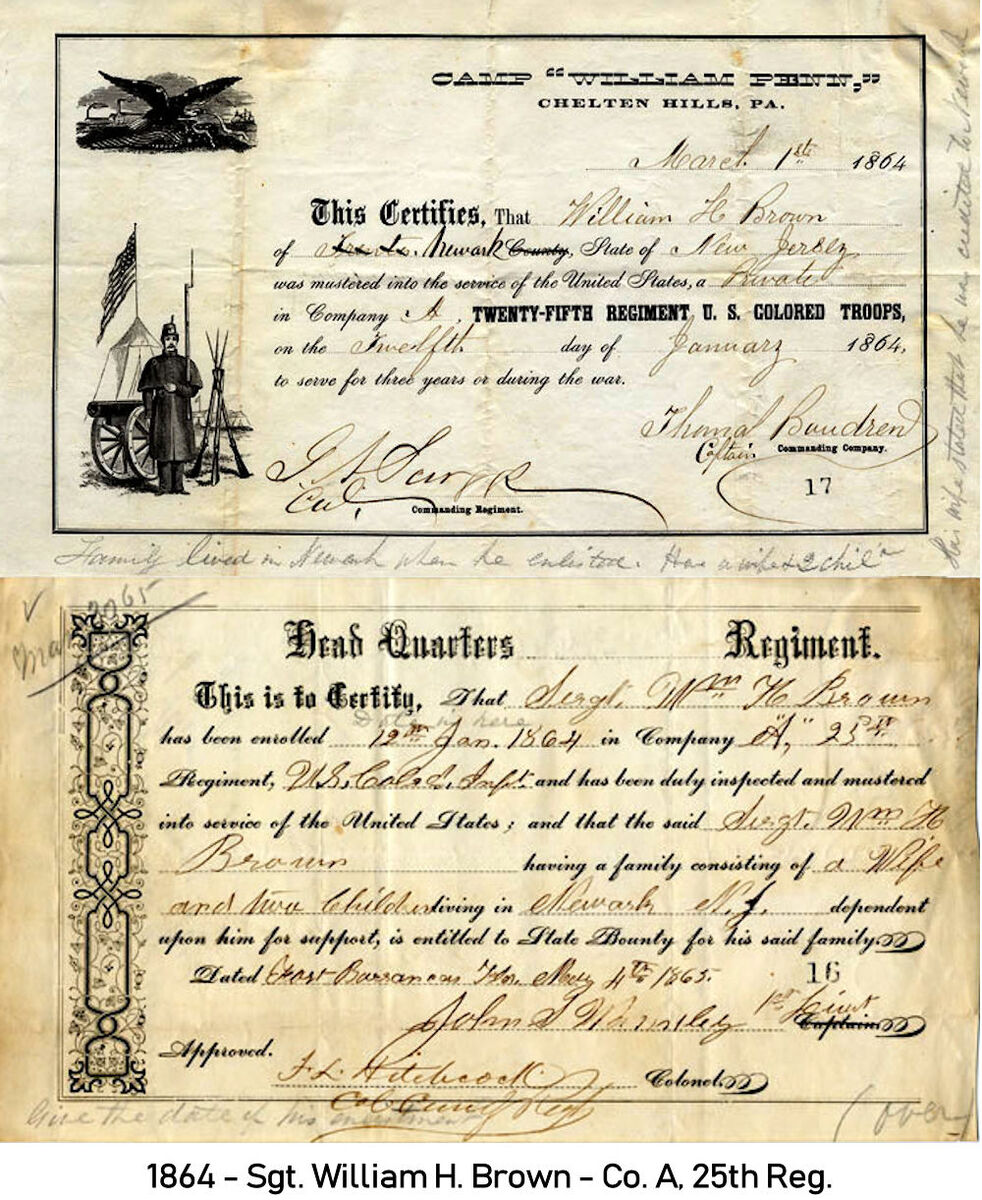 CAMP "WILLIAM PENN,"
CHELTEN HILLS, PA.
March 1st 1864
This Certifies, That William H Brown
of Newark County, State of New Jersey
was mustered into the service of the United States, a Private
in Company A, TWENTY-FIFTH REGIMENT U. S. COLORED TROOPS,
on the Twelfth day of January 1864,
to serve for three years or during the war.
Captain Commanding Company.
17
Col. Commanding Regiment.
Family lived in Newark when he enlisted. Has a wife & 2 chil
His wife states that he was credited to Newark
Head Quarters Regiment.
This is to Certify, That Sergt. Wm H Brown
has been enrolled 12th Jan. 1864 in Company "A," 25th
Regiment, U.S. Cold. Inft. and has been duly inspected and mustered
into service of the United States; and that the said Sergt. Wm H
Brown having a family consisting of a Wife
and two Children living in Newark N.J. dependent
upon him for support, is entitled to State Bounty for his said family.
Dated Fort Barrancas Fla. May 4th 1865.
16
John S 1st Lieut Captain
Approved.
F. L. Hitchcock Colonel
Give the date of his enlistment
(over)
1864 - Sgt. William H. Brown - Co. A, 25th Reg.